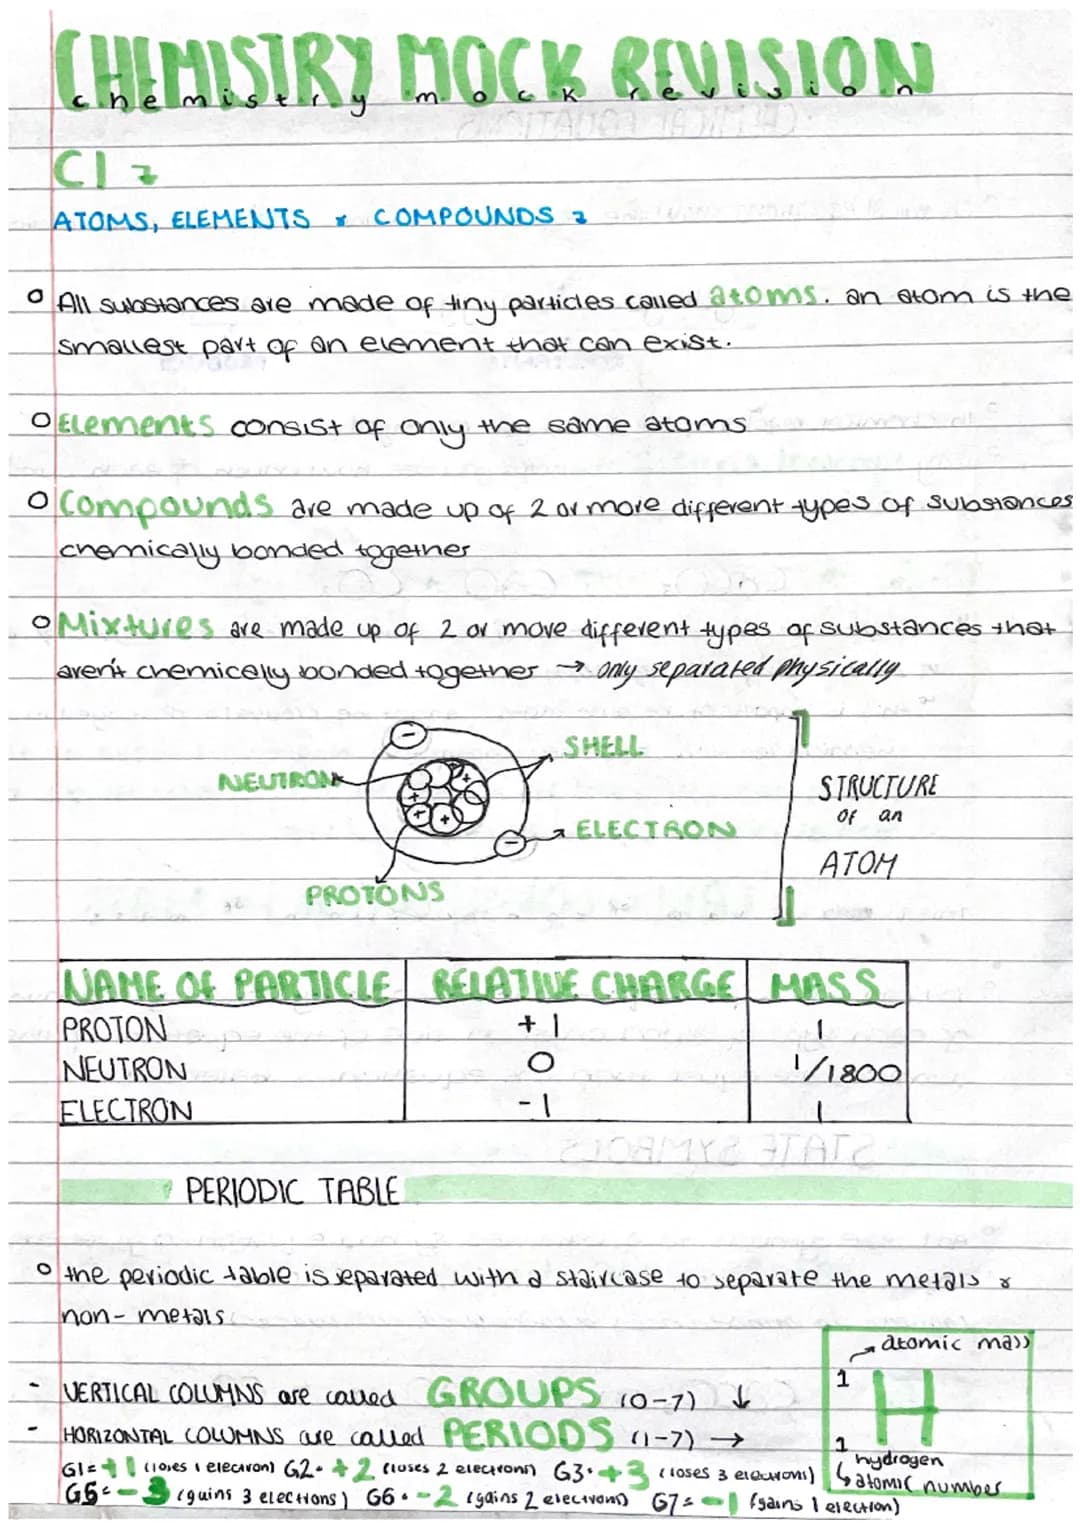 CHEMISTRY MOCK REVISION
chemistry mock revision
C1
ATOMS, ELEMENTS & COMPOUNDS
All substances are made of tiny particles called atoms. an atom is the
smallest part of an element that can exist.
Elements consist of only the same atoms
Compounds are made up of 2 or more different types of substances
chemically bonded together
Mixtures are made up of 2 or more different types of substances that
aren't chemically bonded together → only separated physically
SHELL
NEUTRON
ELECTRON
PROTONS
STRUCTURE
of an
ATOM
NAME OF PARTICLE RELATIVE CHARGE MASS
PROTON +1 1
NEUTRON 0 1/1800
ELECTRON -1 1
PERIODIC TABLE
the periodic table is separated with a staircase to separate the metals &
non-metals
- VERTICAL COLUMNS are called GROUPS (0-7) ↓
- HORIZONTAL COLUMNS are called PERIODS (1-7) →
G1= +1 (loses 1 electron) G2= +2 (loses 2 electrons) G3= +3 (loses 3 electrons)
G5= -3 (gains 3 elections) G6= -2 (gains 2 electrons) G7= -1 (gains 1 election)
atomic mass
1
H
1
hydrogen
atomic number